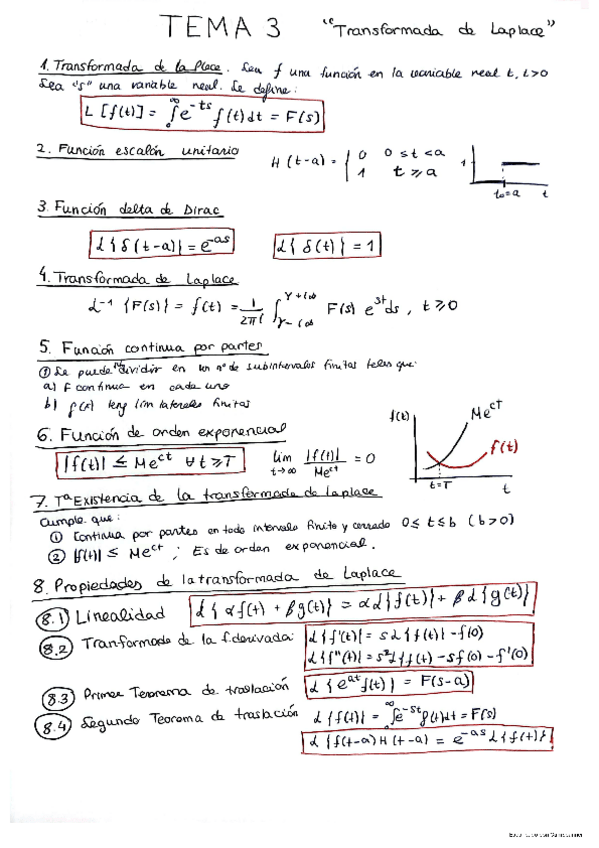 TEMA 3 "Transformada de Laplace"
1. Transformada de la place. Sea f una función en la variable real t, t>0
Sea "s" una variable real. Se define:
L [f(t)] = ∫₀^∞ e^{-ts} f(t)dt = F(s)
2. Función escalón unitario H(t-a) = { 0 0≤t<a
1 t≥a
1
t₀=a t
3. Función delta de Dirac
L{δ(t-a)} = e^{-as} L{δ(t)} = 1
4. Transformada de Laplace
L^{-1} {F(s)} = f(t) = 1/2πi ∫_{γ-i∞}^{γ+i∞} F(s) e^{st} ds, t≥0
5. Función continua por partes
① Se puede dividir en un nº de subintervalos finitos tales que:
a) f continua en cada uno
b) f(x) teng lim laterales finitas
6. Función de orden exponencial
|f(t)| ≤ Me^{ct} ∀t≥T lim_{t→∞} |f(t)|/Me^{ct} = 0
f(t) Me^{ct}
f(t)
t=T t
7. Tª Existencia de la transformada de laplace
Cumple que:
① Continua por partes en todo intervalo finito y cerrado 0≤t≤b (b>0)
② |f(t)| ≤ Me^{ct}; Es de orden exponencial.
8. Propiedades de la transformada de Laplace
8.1 Linealidad L{αf(t) + βg(t)} = αL{f(t)} + βL{g(t)}
8.2 Tranformada de la f.derivada: L{f'(t)} = sL{f(t)} - f(0)
L{f''(t)} = s²L{f(t) - sf(0) - f'(0)
8.3 Primer Teorema de traslación L{e^{at}f(t)} = F(s-a)
8.4 Segundo Teorema de traslación L{f(t)} = ∫₀^∞ e^{-st}f(t)dt = F(s)
L{f(t-a)H(t-a) = e^{-as}L{f(t)}